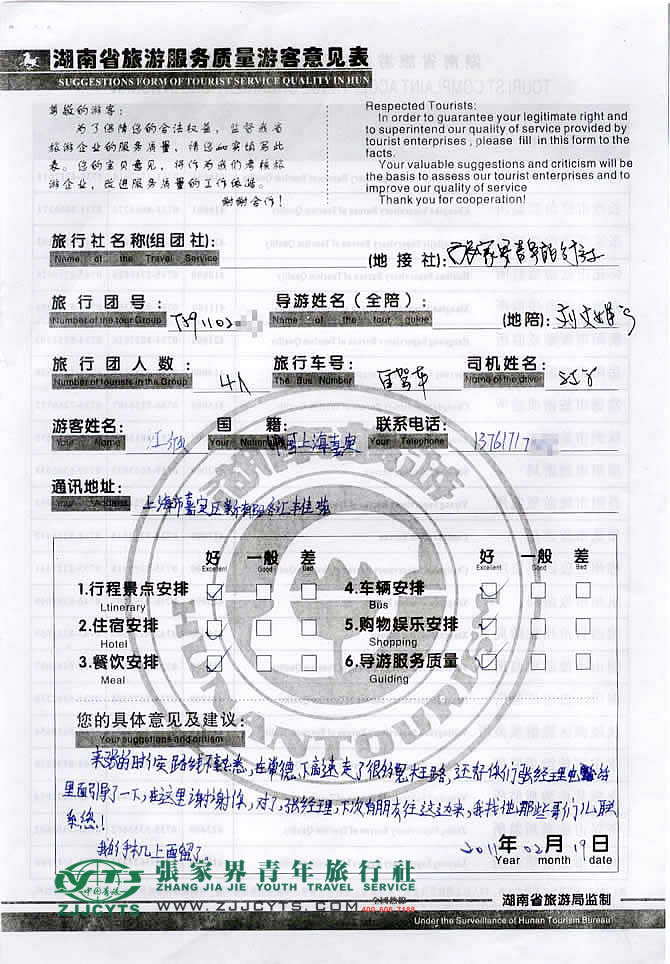 湖南省旅游服务质量游客意见表
SUGGESTIONS FORM OF TOURIST SERVICE QUALITY IN HUN
尊敬的游客:
为了保障您的合法权益,监督我省
旅游企业的服务质量,请您如实填写此
表。您的宝贵意见,将作为我们考核旅
游企业,改进服务质量的工作依据。
谢谢合作!
Respected Tourists:
In order to guarantee your legitimate right and
to superintend our quality of service provided by
tourist enterprises , please fill in this form to the
facts.
Your valuable suggestions and criticism will be
the basis to assess our tourist enterprises and to
improve our quality of service
Thank you for cooperation!
旅行社名称(组团社):
Name of the Travel Service
(地接社):张家界青年旅行社
旅行团号:
Number of the tour Group
导游姓名(全陪):
Name of the tour guide
(地陪):
旅行团人数:
Number of tourists in the Group
4人
旅行车号:
The Bus Number
自驾车
司机姓名:
Name of the driver
游客姓名:
Your Name
国籍:
Your Nationality
中国上海嘉定
联系电话:
Your Telephone
13761717
通讯地址:
Your Address
上海市嘉定区
好 一般 差 好 一般 差
Excellent Good Bad Excellent Good Bad
1.行程景点安排 4.车辆安排
Ltinerary Bus
2.住宿安排 5.购物娱乐安排
Hotel Shopping
3.餐饮安排 6.导游服务质量
Meal Guiding
您的具体意见及建议:
Your suggestions and critism
来张的时候路线不熟悉,在常德下高速走了很多冤枉路,还好你们张经理电话
里面引导了一下,在这里谢谢你,对了,张经理,下次有朋友往这边来,我找他那些哥们儿联
系您!
我的手机上面留了。
2011年02月19日
Year month date
中国青旅
ZJJCYTS
張家界青年旅行社
ZHANG JIA JIE YOUTH TRAVEL SERVICE
WWW.ZJJCYTS.COM
全国热线
400-606-7188
湖南省旅游局监制
Under the Surveillance of Hunan Tourism Bureau
HUNAN TOURISM